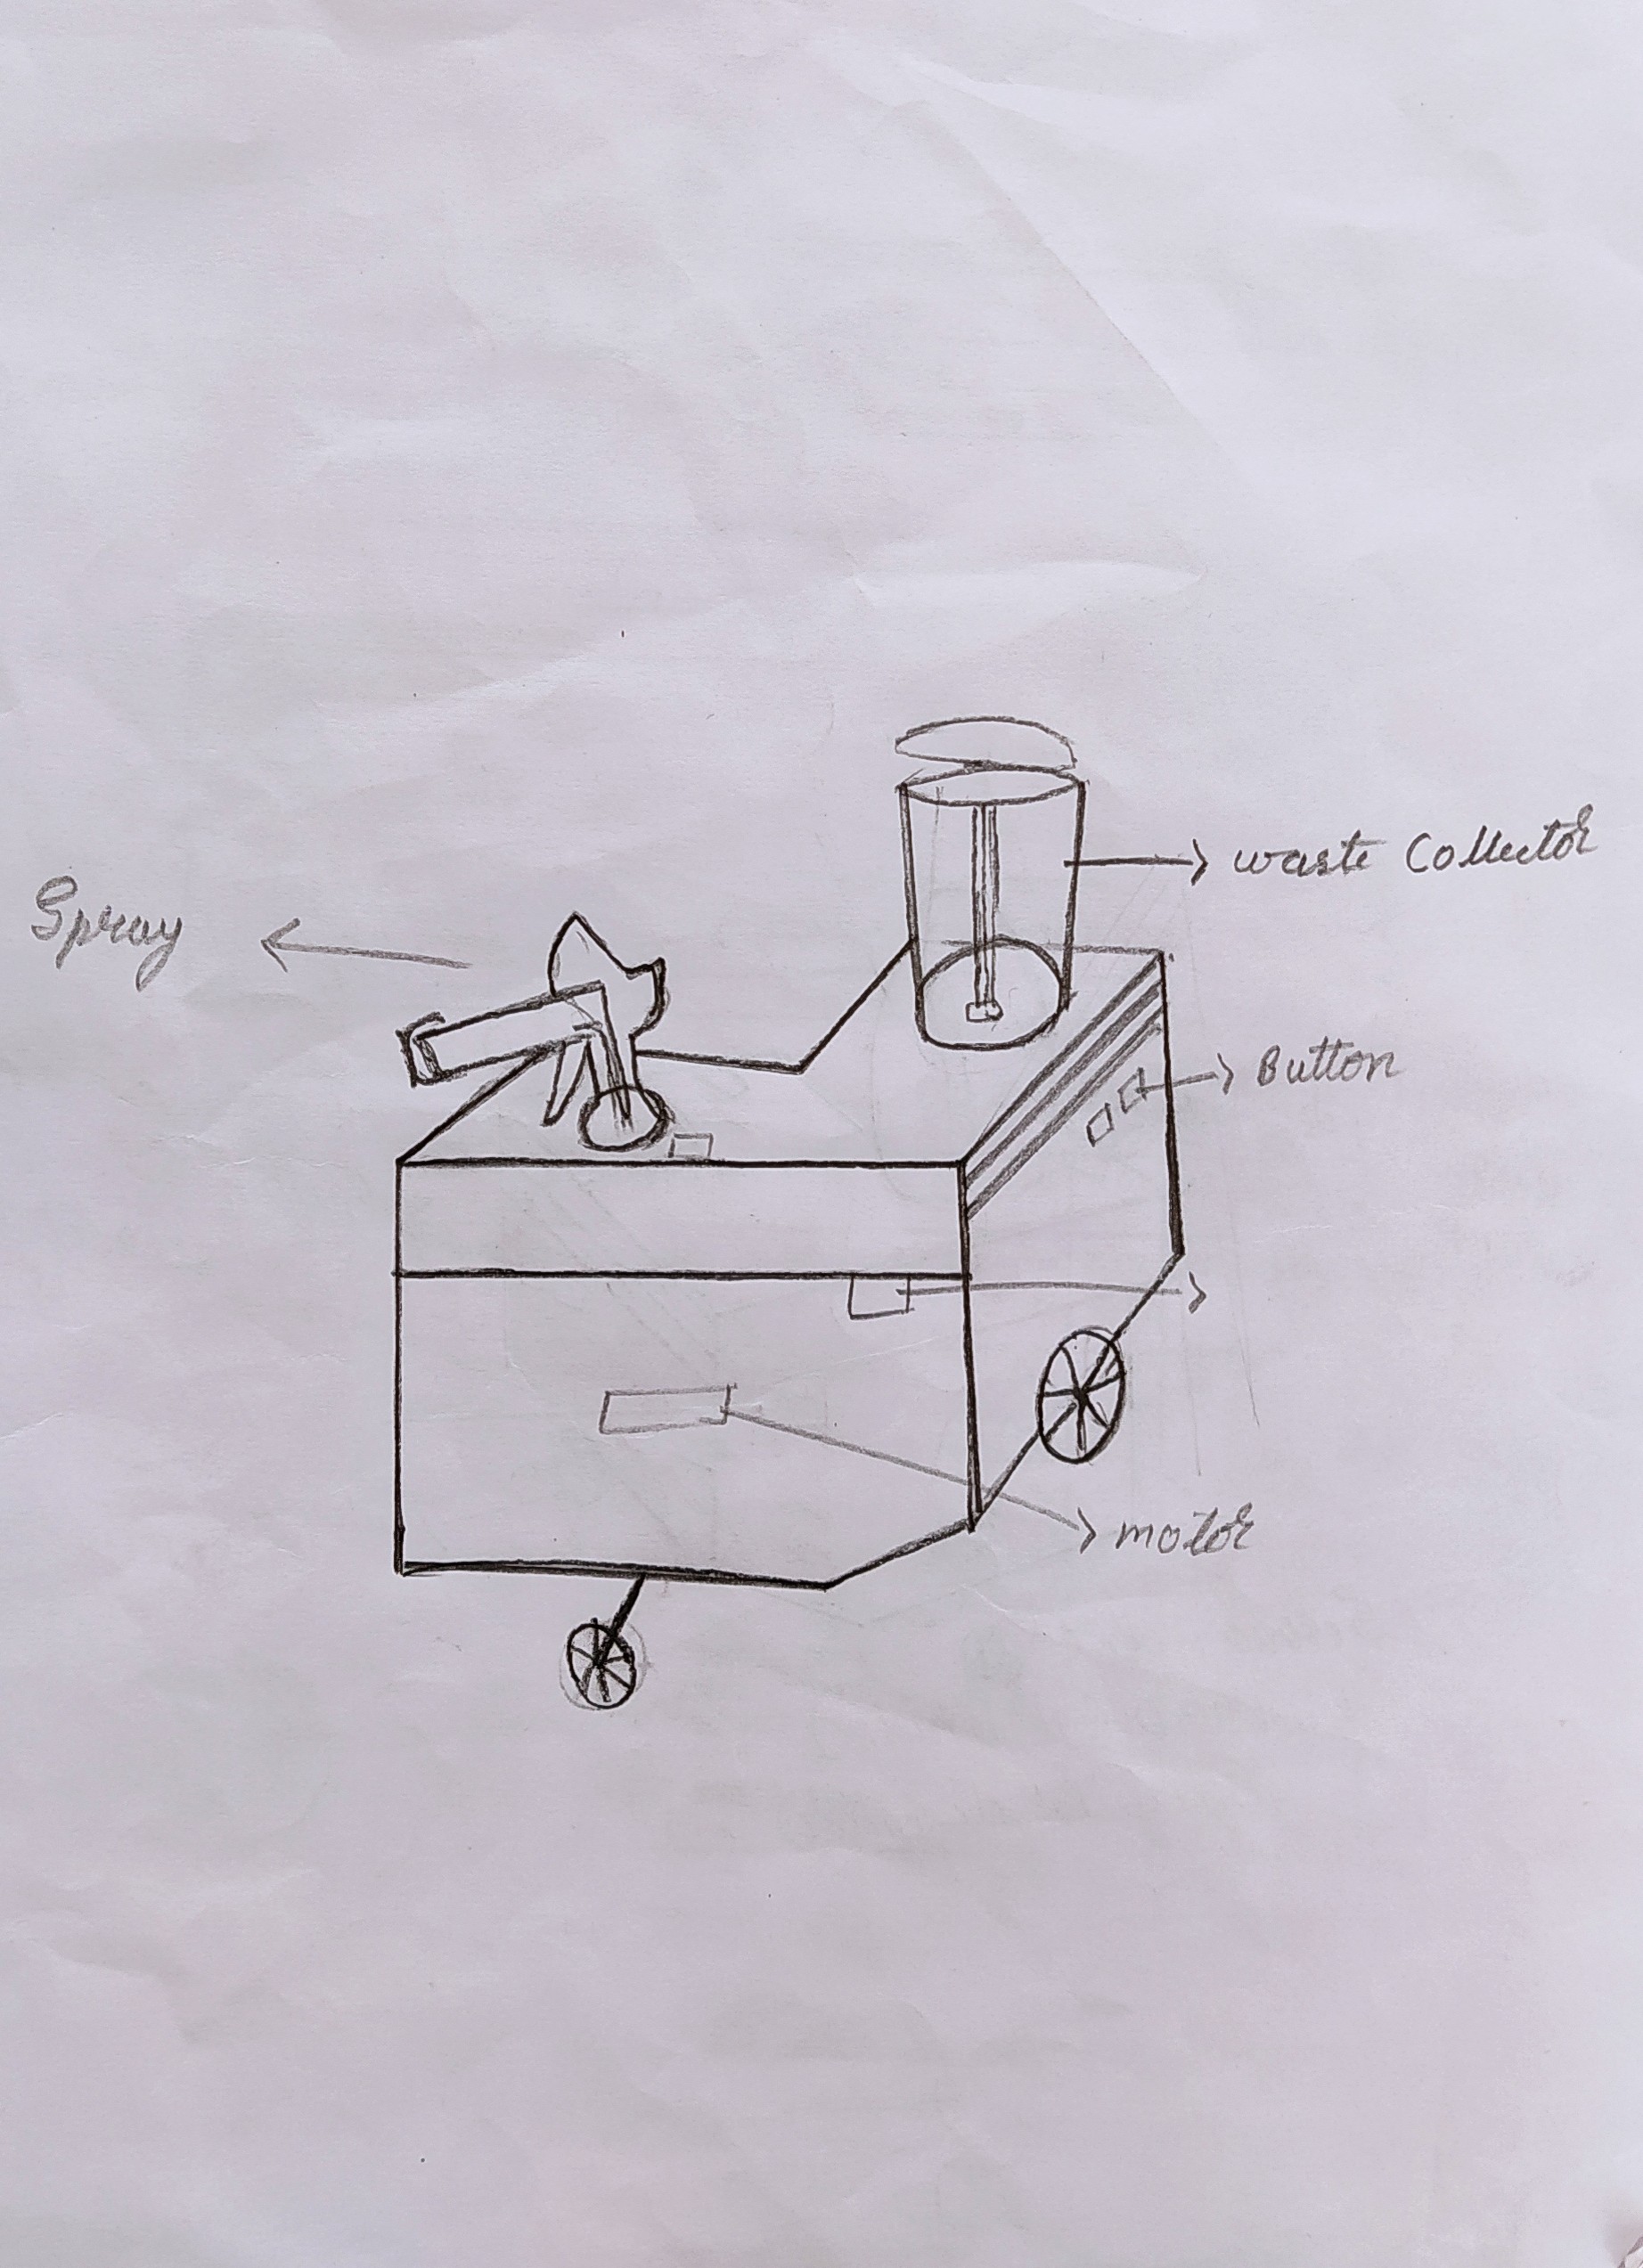 waste Collector
Spray
Button
motor